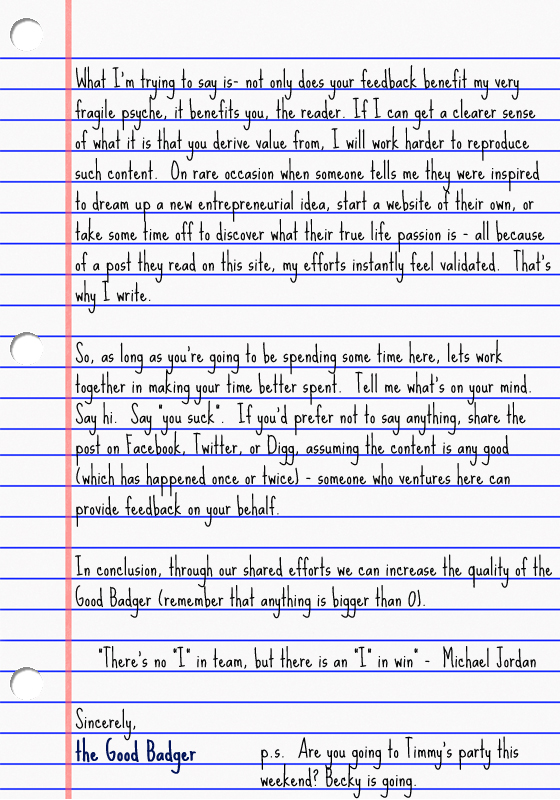 What I'm trying to say is- not only does your feedback benefit my very
fragile psyche, it benefits you, the reader. If I can get a clearer sense
of what it is that you derive value from, I will work harder to reproduce
such content. On rare occasion when someone tells me they were inspired
to dream up a new entrepreneurial idea, start a website of their own, or
take some time off to discover what their true life passion is - all because
of a post they read on this site, my efforts instantly feel validated. That's
why I write.
So, as long as you're going to be spending some time here, lets work
together in making your time better spent. Tell me what's on your mind.
Say hi. Say "you suck". If you'd prefer not to say anything, share the
post on Facebook, Twitter, or Digg, assuming the content is any good
(which has happened once or twice) - someone who ventures here can
provide feedback on your behalf.
In conclusion, through our shared efforts we can increase the quality of the
Good Badger (remember that anything is bigger than 0).
"There's no "I" in team, but there is an "I" in win" - Michael Jordan
Sincerely,
the Good Badger
p.s. Are you going to Timmy's party this
weekend? Becky is going.